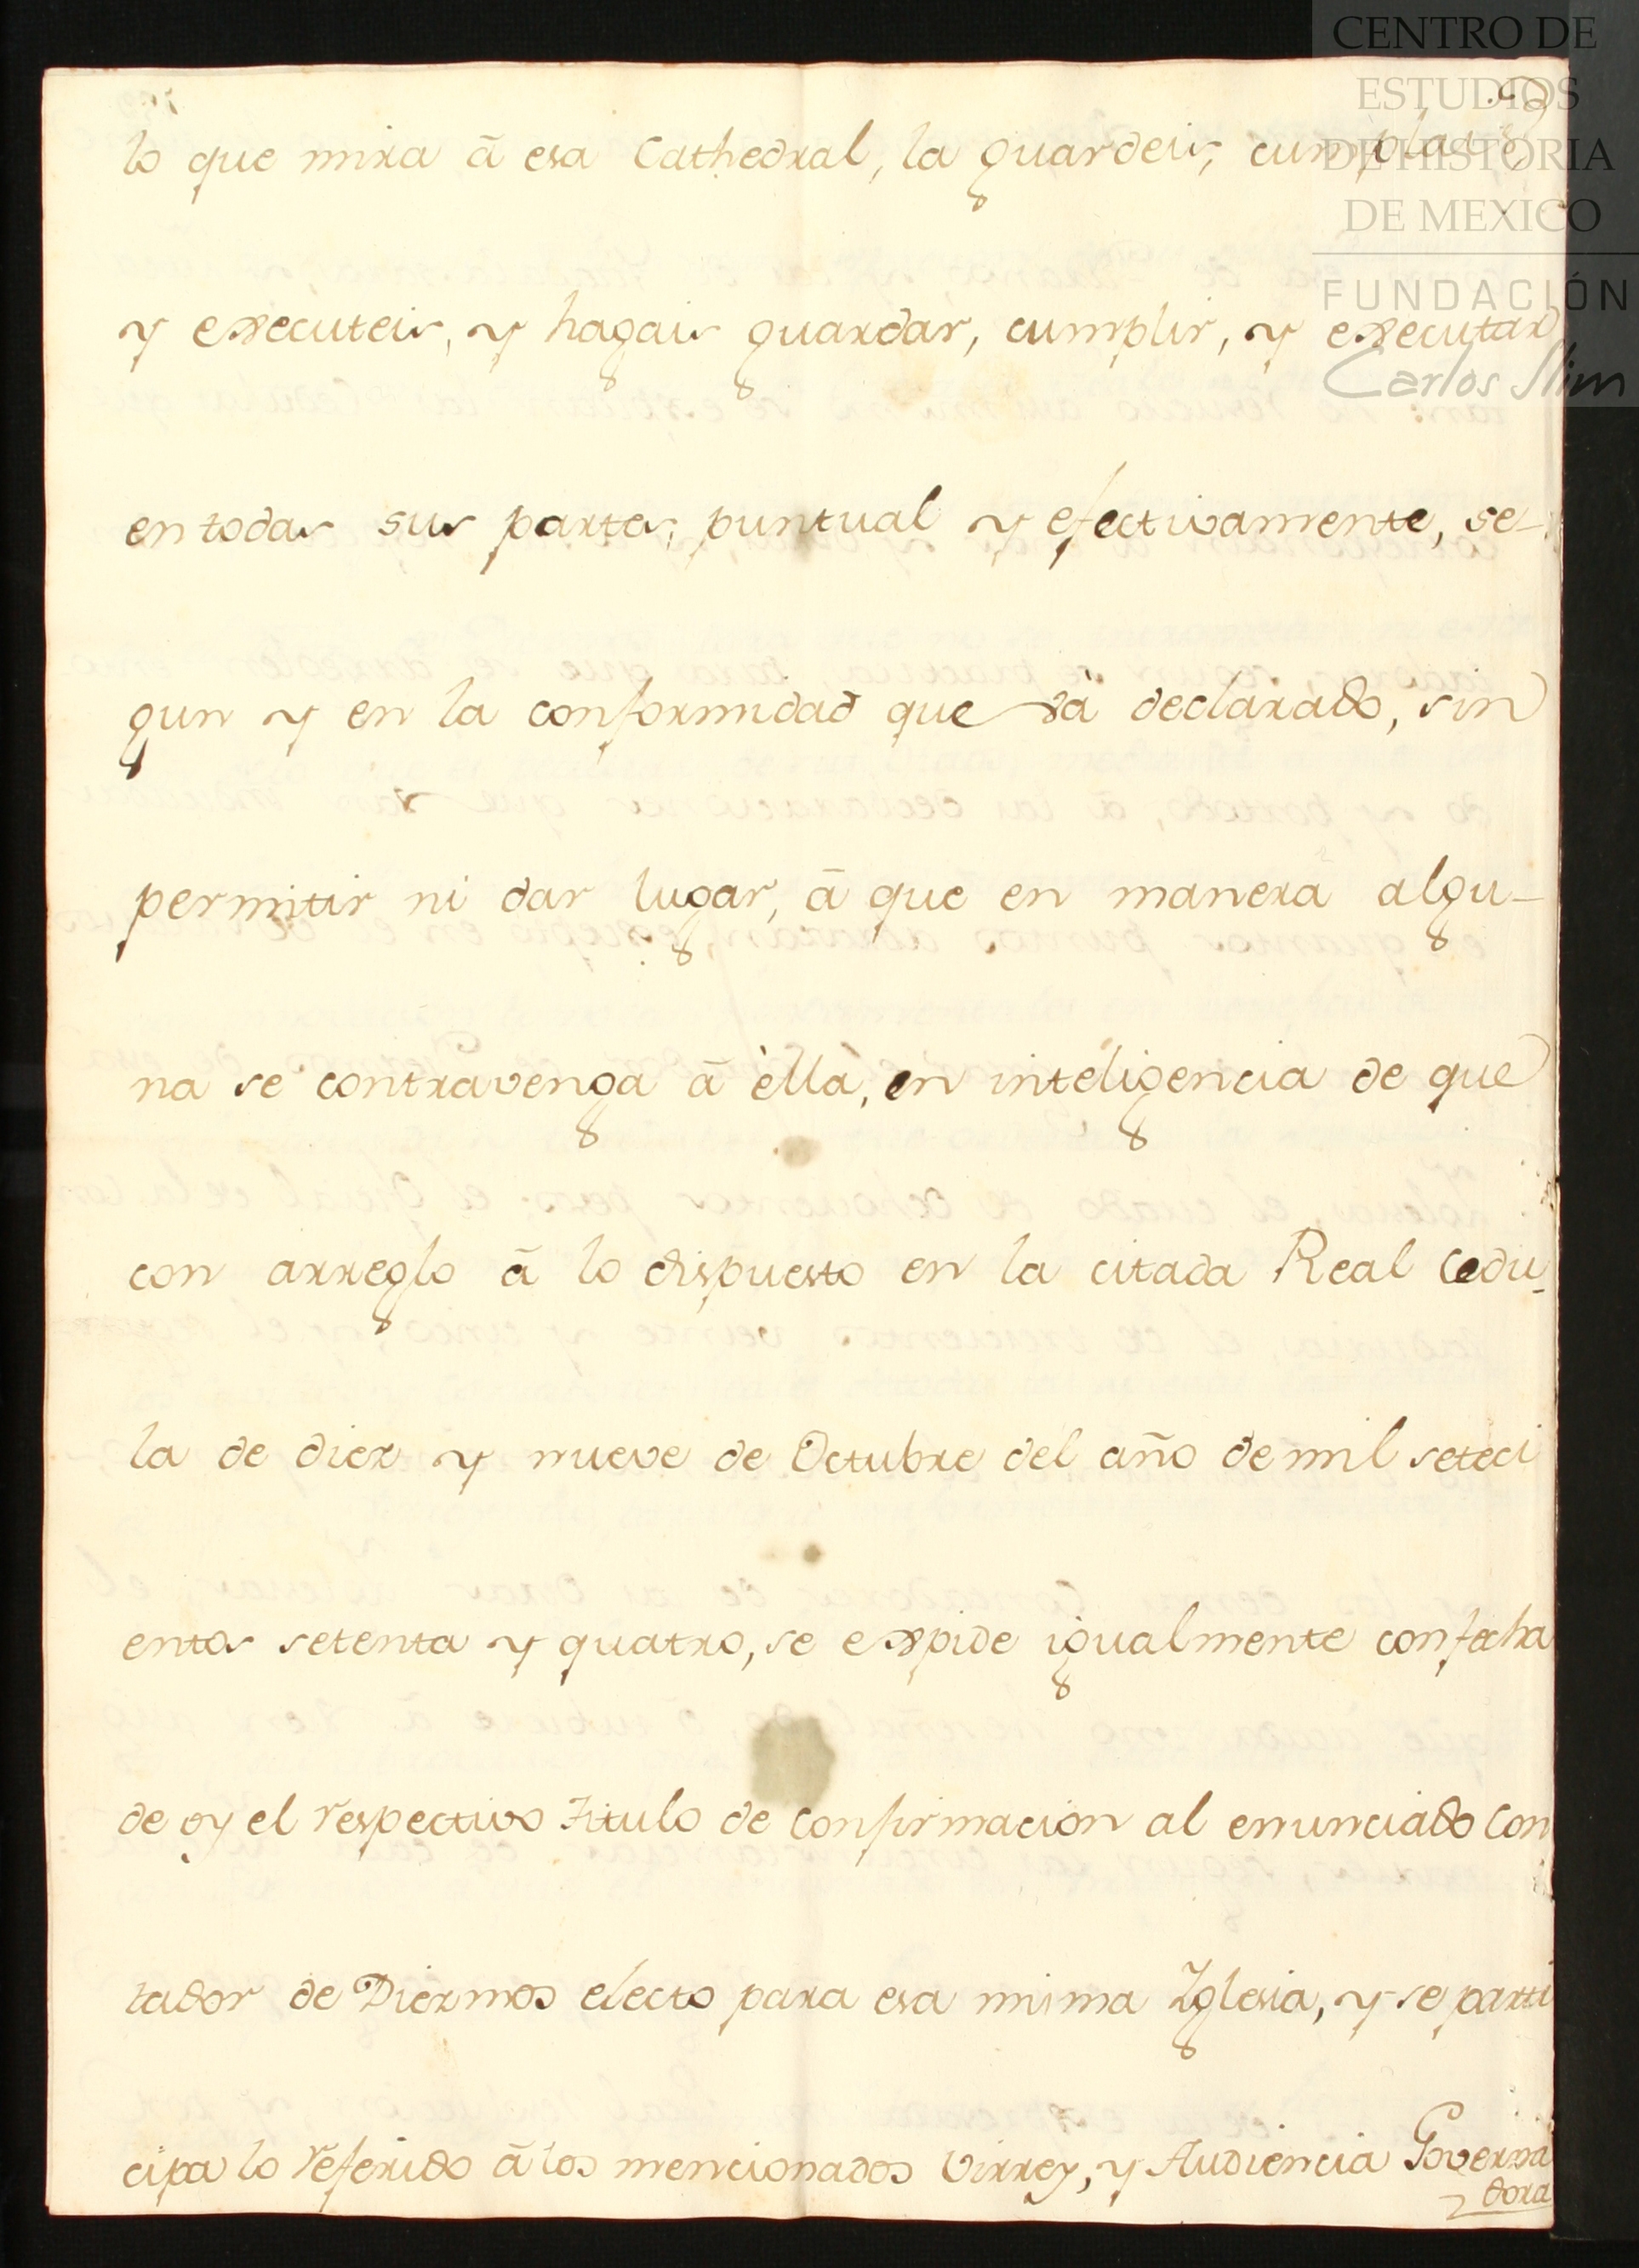 CENTRO DE
ESTUDIOS
DE HISTORIA
DE MEXICO
FUNDACIÓN
Carlos Slim
lo que mira â esa Cathedral, la guardeis, cumplais,
y executeis, y hagais guardar, cumplir, y executar
en todas sus partes, puntual y efectivamente, se-
gun y en la conformidad que và declarado, sin
permitir ni dar lugar, â que en manera algu-
na se contravenga â èlla, en inteligencia de que
con arreglo â lo dispuesto en la citada Real Cedu-
la de diez y nueve de Octubre del año de mil seteci
entos setenta y quatro, se expide igualmente con fecha
de oy el respectivo Titulo de Confirmacion al enunciado Con
tador de Diezmos electo para esa misma Yglesia, y se parti
cipa lo referido â los mencionados Virrey, y Audiencia Governa
dora